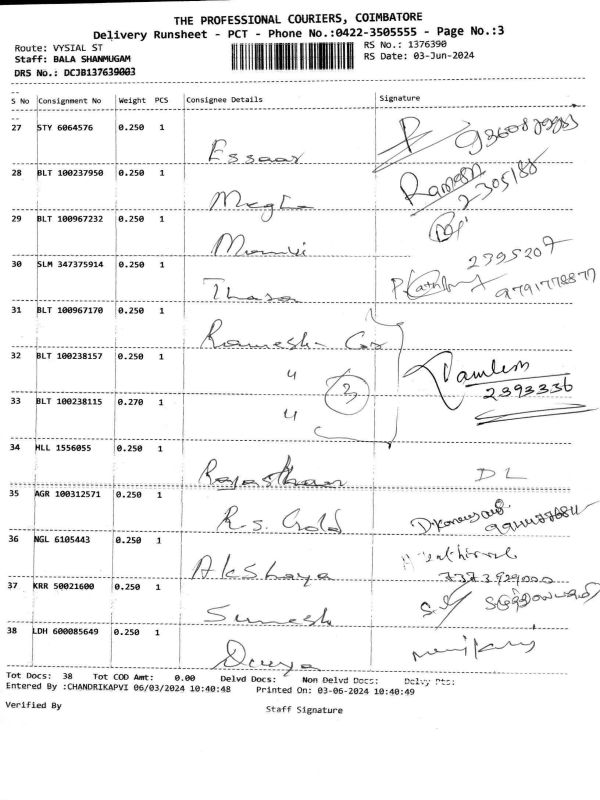 THE PROFESSIONAL COURIERS, COIMBATORE
Delivery Runsheet - PCT - Phone No.:0422-3505555 - Page No.:3
Route: VYSIAL ST RS No.: 1376390
Staff: BALA SHANMUGAM RS Date: 03-Jun-2024
DRS No.: DCJB137639003
S No Consignment No Weight PCS Consignee Details Signature
27 STY 6064576 0.250 1
Essaar
28 BLT 100237950 0.250 1
Megha Raman 2305188
29 BLT 100967232 0.250 1
2395207
30 SLM 347375914 0.250 1
9791778877
31 BLT 100967170 0.250 1
Ramesh
32 BLT 100238157 0.250 1
" 3
2393336
33 BLT 100238115 0.270 1
"
34 HLL 1556055 0.250 1
Rajasthan DL
35 AGR 100312571 0.250 1
R.S. Gold
36 NGL 6105443 0.250 1
Akshaya
37 KRR 50021600 0.250 1
Sumesh
38 LDH 600085649 0.250 1
Tot Docs: 38 Tot COD Amt: 0.00 Delvd Docs: Non Delvd Docs: Delvy Pts:
Entered By :CHANDRIKAPVI 06/03/2024 10:40:48 Printed On: 03-06-2024 10:40:49
Verified By Staff Signature